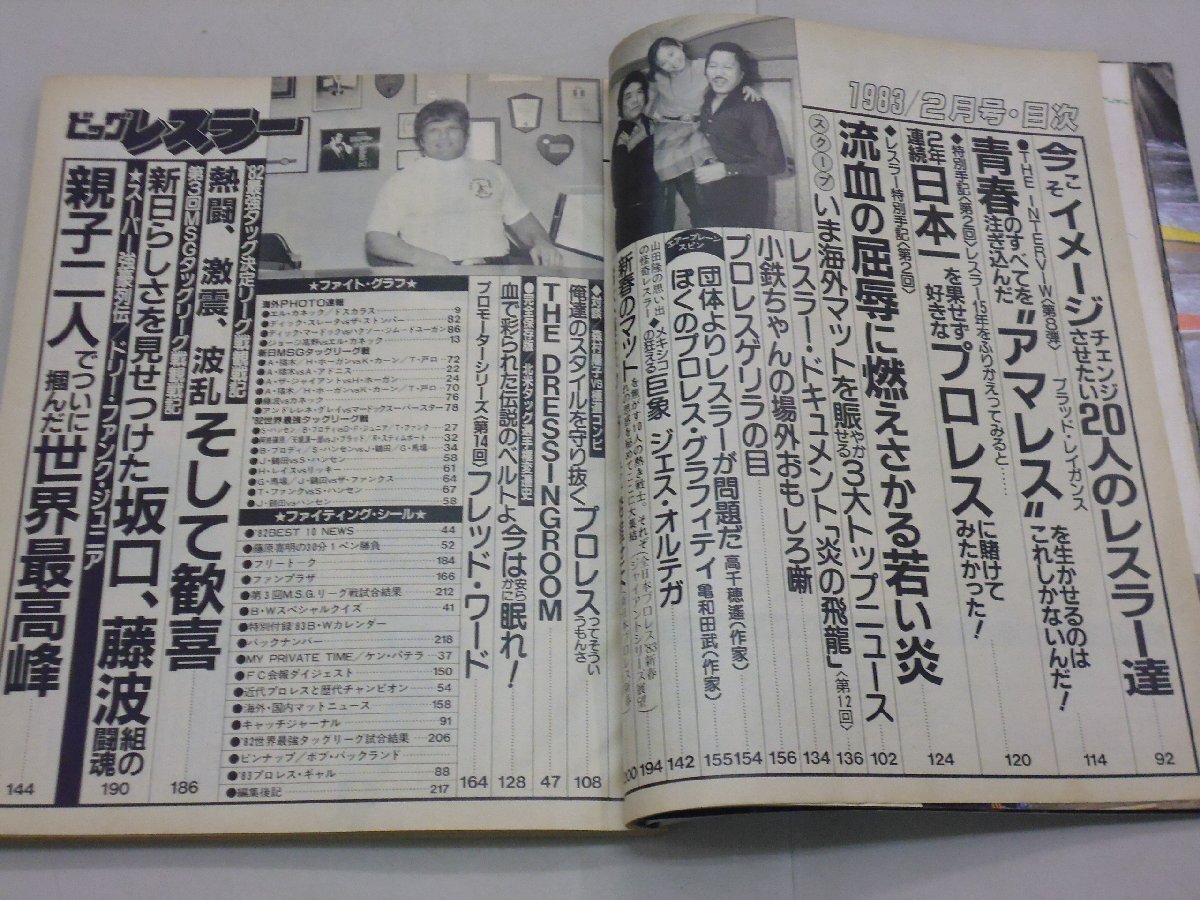 1983/2月号・目次
今こそイメージチェンジさせたい20人のレスラー達
92
●THE INTERVIW〈第8弾〉 ブラッド・レイガンス
青春のすべてを注ぎ込んだ"アマレス"を生かせるのはこれしかないんだ!
114
◆特別手記〈第2回〉レスラー15年をふりかえってみると……
2年連続日本一を果せず 好きなプロレスに賭けてみたかった!
120
◆レスラー特別手記〈第2回〉
流血の屈辱に燃えさかる若い炎
124
スクープ いま海外マットを賑やかせる3大トップニュース
102
レスラー・ドキュメント「炎の飛龍」〈第12回〉
136
小鉄ちゃんの場外おもしろ噺
134
プロレスゲリラの目
156
エアー・プレーンスピン
団体よりレスラーが問題だ 高千穂遙〈作家〉
154
ぼくのプロレス・グラフィティ 亀和田武〈作家〉
155
山田隆の思い出の怪奇レスラー
◆メキシコの狂える巨象 ジェス・オルテガ
142
194
新春のマット
200
ビッグレスラー
◆対談
俺達のスタイルを守り抜くプロレスってそういうもんさ
108
THE DRESSINGROOM
47
●完全保存版/北米タッグ選手権変遷史
血で彩られた伝説のベルトよ今は安らかに眠れ!
128
プロモーターシリーズ〈第14回〉フレッド・ワード
164
★ファイト・グラフ★
海外PHOTO速報
●エル・カネック/ドスカラス 9
●ディック・スレーターvsザ・ストンパー 82
●ディック・マードックvsハクソー・ジム・ドューガン 86
●ジョージ高野vsエル・カネック 13
新日MSGタッグリーグ戦
●A・猪木/H・ホーガンvsK・カーン/T・戸口 72
●A・猪木vsA・アドニス 22
●A・ザ・ジャイアントvsH・ホーガン 24
●A・猪木/H・ホーガンvsK・カーン/T・戸口 70
●藤波vsカネック 76
●アンドレ&R・グレイvsマードック&スーパースター 78
'82世界最強タッグリーグ戦
●S・ハンセン/B・ブロディvsD・ジュニア/T・ファンク 27
●阿修羅原/天龍源一郎vsJ・ブラッド/R・スティムボート 32
●B・ブロディ/S・ハンセンvsJ・鶴田/G・馬場 34
●J・鶴田vsS・ハンセン 58
●H・レイスvsリッキー 61
●G・馬場/J・鶴田vsザ・ファンクス 64
●T・ファンクvsS・ハンセン 67
●J・鶴田vsハンセン 58
★ファイティング・シール★
●'82BEST 10 NEWS 44
●藤原喜明の30分1ペン勝負 52
●フリートーク 184
●ファンプラザ 166
●第3回M.S.G.リーグ戦試合結果 212
●B・Wスペシャルクイズ 41
●特別付録'83B・Wカレンダー
●バックナンバー 218
●MY PRIVATE TIME/ケン・パテラ 37
●FC会報ダイジェスト 150
●近代プロレスと歴代チャンピオン 54
●海外・国内マットニュース 158
●キャッチジャーナル 91
●'82世界最強タッグリーグ試合結果 206
●ピンナップ/ボブ・バックランド
●'83プロレス・ギャル 88
●編集後記 217
'82最強タッグ決定リーグ戦総
熱闘、激震、波乱そして歓喜
186
第3回MSGタッグリーグ戦
新日らしさを見せつけた坂口、藤波組の闘魂
190
★スーパー強豪列伝/ドリー・ファンク・ジュニア
親子二人でついに掴んだ世界最高峰
144